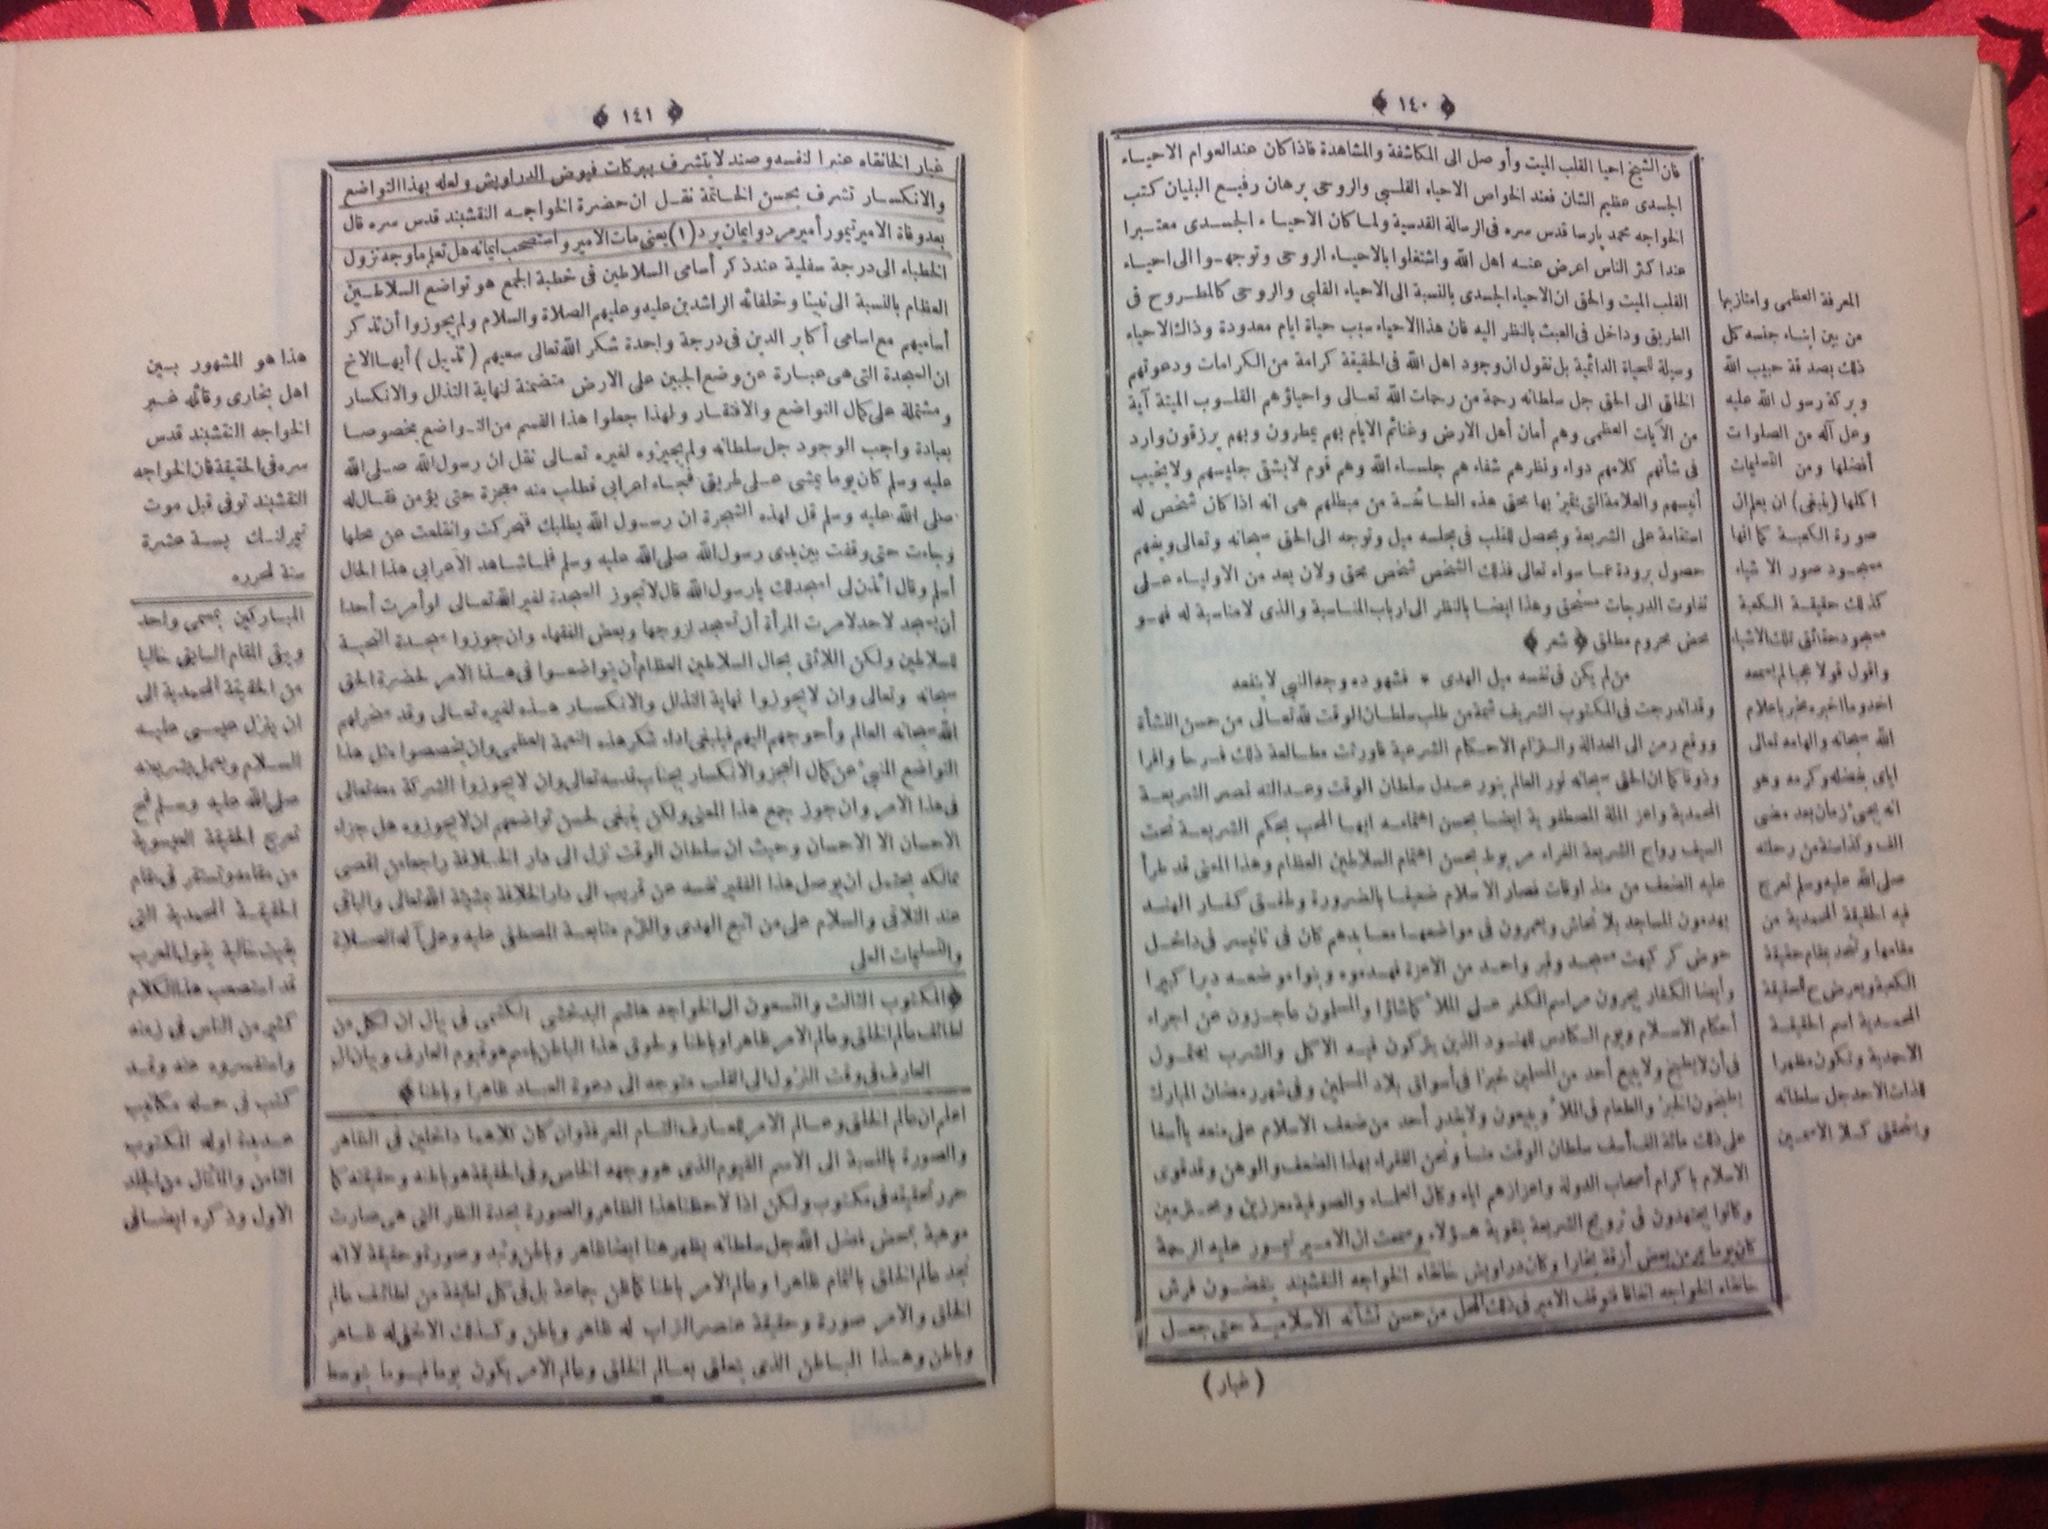 ﴿ ١٤٠ ﴾
فان الشيخ احيا القلب الميت وأوصل الى المكاشفة والمشاهدة فاذا كان عند العوام الاحياء
الجسدى عظيم الشان فعند الخواص الاحياء القلبى والروحى برهان رفيع البنيان كتب
الخواجه محمد پارسا قدس سره فى الرسالة القدسية ولما كان الاحياء الجسدى معتبرا
عند اكثر الناس اعرض عنه اهل الله واشتغلوا بالاحياء الروحى وتوجهوا الى احياء
القلب الميت والحق ان الاحياء الجسدى بالنسبة الى الاحياء القلبى والروحى كالمطروح فى
الطريق وداخل فى العبث بالنظر اليه فان هذا الاحياء سبب حياة ايام معدودة وذاك الاحياء
وسيلة للحياة الدائمية بل نقول ان وجود اهل الله فى الحقيقة كرامة من الكرامات ودعوتهم
الخلق الى الحق جل سلطانه رحمة من رحمات الله تعالى واحياؤهم القلوب الميتة آية
من الآيات العظمى وهم أمان أهل الارض وغنائم الايام بهم يمطرون وبهم يرزقون وارد
فى شأنهم كلامهم دواء ونظرهم شفاء هم جلساء الله وهم قوم لا يشقى جليسهم ولا يخيب
أنيسهم والعلامة التى يتميز بها محق هذه الطائفة من مبطلهم هى انه اذا كان شخص له
استقامة على الشريعة ويحصل للقلب فى مجلسه ميل وتوجه الى الحق سبحانه وتعالى ويفهم
حصول برودة عما سواه تعالى فذلك الشخص شخص محق ولان يعد من الاولياء على
تفاوت الدرجات مستحق وهذا ايضا بالنظر الى ارباب المناسبة والذى لا مناسبة له فهو
محض محروم مطلق ﴿ شعر ﴾
من لم يكن فى نفسه ميل الهدى * فشهوده وجه النبي لا ينفعه
وقد اندرجت فى المكتوب الشريف شمة من طلب سلطان الوقت لله تعالى من حسن النشأة
ووقع رمز الى العدالة والتزام الاحكام الشرعية فاورثت مطالعة ذلك فرحا وافرا
وذوقا كما ان الحق سبحانه نور العالم بنور عدل سلطان الوقت وعدالته نصر الشريعة
المحمدية واعز الملة المصطفوية ايضا بحسن اهتمامه ايها المحب بحكم الشريعة تحت
السيف رواج الشريعة الغراء مربوط بحسن اهتمام السلاطين العظام وهذا المعنى قد طرأ
عليه الضعف من منذ اوقات فصار الاسلام ضعيفا بالضرورة وطفق كفار الهند
يهدمون المساجد بلا تحاش ويعمرون فى مواضعها معابدهم كان فى تانيسر فى داخل
حوض كركهيت مسجد وقبر واحد من الاعزة فهدموه وبنوا موضعه ديرا كبيرا
وأيضا الكفار يجرون مراسم الكفر على الملأ كما شاؤا والمسلمون عاجزون عن اجراء
أحكام الاسلام ويوم الكادس للهنود الذين يتركون فيه الاكل والشرب يجتهدون
فى أن لا يطبخ ولا يبيع أحد من المسلمين خبزا فى أسواق بلاد المسلمين وفى شهر رمضان المبارك
يطبخون الخبز والطعام فى الملأ ويبيعون ولا يقدر أحد من ضعف الاسلام على منعه يا أسفا
على ذلك مائة ألف أسف سلطان الوقت منا ونحن الفقراء بهذا الضعف والوهن وقد قوى
الاسلام باكرام أصحاب الدولة واعزازهم اياه وكان العلماء والصوفية معززين ومحترمين
وكانوا يجتهدون فى ترويج الشريعة بتقوية هؤلاء وسمعت ان الامير تيمور عليه الرحمة
كان يوما يمر من بعض أزقة بخارا وكان دراويش خانقاه الخواجه النقشبند ينفضون فرش
خانقاه الخواجه اتفاقا فتوقف الامير فى ذلك المحل من حسن نشأته الاسلامية حتى جعل
( غبار )
المعرفة العظمى وامتاز بها
من بين ابناء جنسه كل
ذلك بصدقة حبيب الله
وبركة رسول الله عليه
وعلى آله من الصلوات
أفضلها ومن التسليمات
اكملها (ينبغى) ان يعلم ان
صورة الكعبة كما انها
مسجود صور الاشياء
كذلك حقيقة الكعبة
مسجود حقائق تلك الاشياء
واقول قولا عجبا لم يسمعه
احد وما اخبر به مخبر باعلام
الله سبحانه والهامه تعالى
اياى بفضله وكرمه وهو
انه يجىء زمان بعد مضى
الف وكذا سنة من رحلته
صلى الله عليه وسلم تعرج
فيه الحقيقة المحمدية من
مقامها وتتحد بمقام حقيقة
الكعبة ويعرض ح للحقيقة
المحمدية اسم الحقيقة
الاحمدية وتكون مظهرا
لذات الاحد جل سلطانه
ويتحقق كلا الاسمين
﴿ ١٤١ ﴾
غبار الخانقاه عنبرا لنفسه وصندلا يتشرف ببركات فيوض الدراويش ولعله بهذا التواضع
والانكسار تشرف بحسن الخاتمة نقل ان حضرة الخواجه النقشبند قدس سره قال
بعد وفاة الامير تيمور أمير مرد وايمان برد (١) يعنى مات الامير واستصحب ايمانه هل تعلم ما وجه نزول
الخطباء الى درجة سفلية عند ذكر أسامى السلاطين فى خطبة الجمع هو تواضع السلاطين
العظام بالنسبة الى نبينا وخلفائه الراشدين عليه وعليهم الصلاة والسلام ولم يجوزوا أن تذكر
أساميهم مع اسامى أكابر الدين فى درجة واحدة شكر الله تعالى سعيهم ( تذييل ) أيها الاخ
ان السجدة التى هى عبارة عن وضع الجبين على الارض متضمنة لنهاية التذلل والانكسار
ومشتملة على كمال التواضع والافتقار ولهذا جعلوا هذا القسم من التواضع مخصوصا
بعبادة واجب الوجود جل سلطانه ولم يجيزوه لغيره تعالى نقل ان رسول الله صلى الله
عليه وسلم كان يوما يمشى على طريق فجاء اعرابى فطلب منه معجزة حتى يؤمن فقال له
صلى الله عليه وسلم قل لهذه الشجرة ان رسول الله يطلبك فتحركت وانقلعت عن محلها
وجاءت حتى وقفت بين يدى رسول الله صلى الله عليه وسلم فلما شاهد الاعرابى هذا الحال
أسلم وقال ائذن لى اسجد لك يا رسول الله قال لا تجوز السجدة لغير الله تعالى لو أمرت أحدا
أن يسجد لاحد لامرت المرأة أن تسجد لزوجها وبعض الفقهاء وان جوزوا سجدة التحية
للسلاطين ولكن اللائق بحال السلاطين العظام أن يتواضعوا فى هذا الامر لحضرة الحق
سبحانه وتعالى وان لا يجوزوا نهاية التذلل والانكسار هذه لغيره تعالى وقد سخر لهم
الله سبحانه العالم وأحوجهم اليهم فينبغى اداء شكر هذه النعمة العظمى وان يخصصوا مثل هذا
التواضع المنبئ عن كمال العجز والانكسار بجناب قدسه تعالى وان لا يجوزوا الشركة معه تعالى
فى هذا الامر وان جوز جمع هذا المعنى ولكن ينبغى لحسن تواضعهم ان لا يجوزوه هل جزاء
الاحسان الا الاحسان وحيث ان سلطان الوقت نزل الى دار الخلافة راجعا من اقصى
ممالكه يحتمل ان يوصل هذا الفقير نفسه عن قريب الى دار الخلافة بمشيئة الله تعالى والباقى
عند التلاقى والسلام على من اتبع الهدى والتزم متابعة المصطفى عليه وعلى آله الصلاة
والتسليمات العلى
﴿ المكتوب الثالث والتسعون الى الخواجه هاشم البدخشى الكشمى فى بيان ان لكل من
لطائف عالم الخلق وعالم الامر ظاهرا وباطنا ولحوق هذا الباطن باسم هو قيوم العارف وبيان ان
العارف فى وقت النزول الى القلب متوجه الى دعوة العباد ظاهرا وباطنا ﴾
اعلم ان عالم الخلق وعالم الامر للعارف التام المعرفة وان كان كلاهما داخلين فى الظاهر
والصورة بالنسبة الى الاسم القيوم الذى هو وجهه الخاص وفى الحقيقة هو باطنه وحقيقته كما
حرر تحقيقه فى مكتوب ولكن اذا لاحظنا هذا الظاهر والصورة بحدة النظر التى هى صارت
موهبة بمحض فضل الله جل سلطانه يظهر هنا ايضا ظاهر وباطن وتبد وصورة وحقيقة لا انه
نجد عالم الخلق بالتمام ظاهرا وعالم الامر باطنا كما ظن جماعة بل فى كل لطيفة من لطائف عالم
الخلق والامر صورة وحقيقة عنصر التراب له ظاهر وباطن وكذلك الاخفى له ظاهر
وباطن وهذا الباطن الذى يتعلق بعالم الخلق وعالم الامر يكون يوما فيوما بتوسط
هذا هو المشهور بين
اهل بخارى وقائله غير
الخواجه النقشبند قدس
سره فى الحقيقة فان الخواجه
النقشبند توفى قبل موت
تيمرلنك بستة عشرة
سنة لمحرره
المباركين بمسمى واحد
ويبقى المقام السابق خاليا
من الحقيقة المحمدية الى
ان ينزل عيسى عليه
السلام ويعمل بشريعته
صلى الله عليه وسلم فح
تعرج الحقيقة العيسوية
من مقامه وتستقر فى مقام
الحقيقة المحمدية التى
بقيت خالية يقول المعرب
قد استصعب هذا الكلام
كثير من الناس فى زمنه
واستفسروه عنه وقد
كتب فى حله مكاتيب
عديدة اوله المكتوب
الثامن والمائتان من الجلد
الاول وذكره ايضا فى